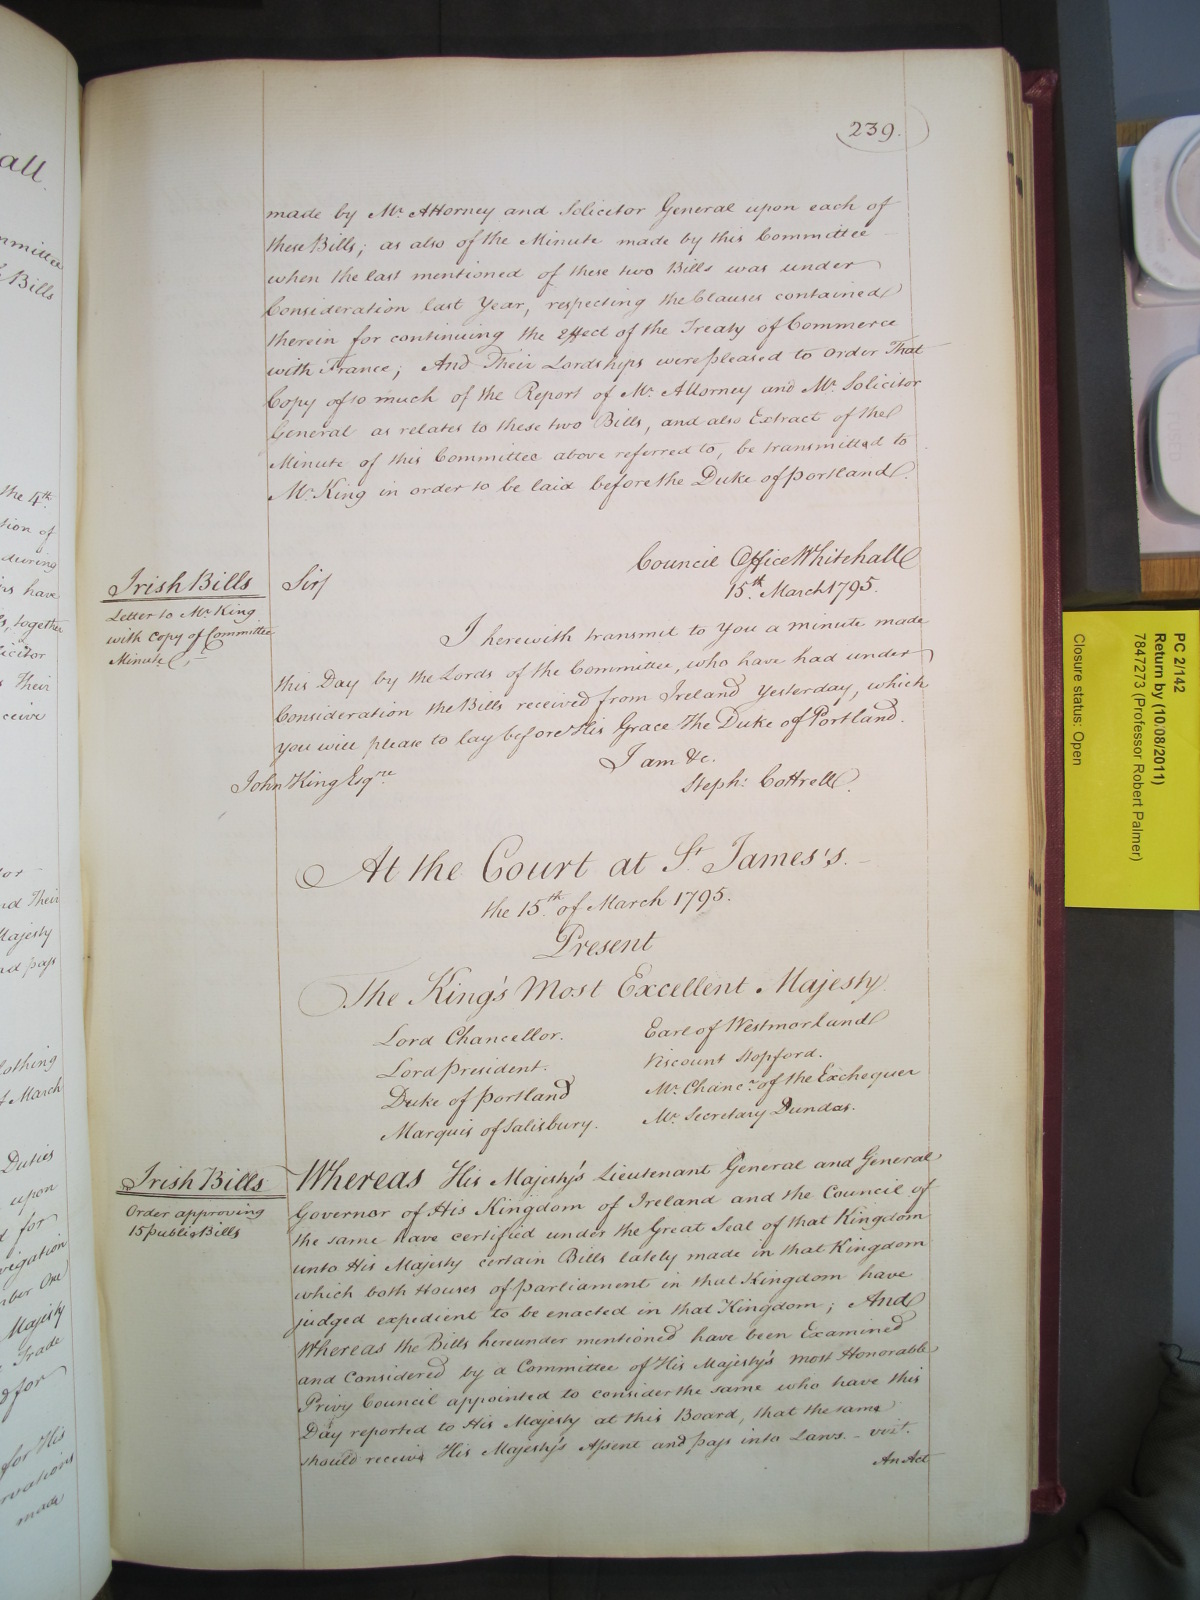 239.
made by Mr Attorney and Solicitor General upon each of
these Bills; as also of the Minute made by this Committee
when the last mentioned of these two Bills was under
Consideration last Year, respecting the Clauses contained
therein for continuing the Effect of the Treaty of Commerce
with France; And Their Lordships were pleased to order That
Copy of so much of the Report of Mr Attorney and Mr Solicitor
General as relates to these two Bills, and also Extract of the
Minute of this Committee above referred to, be transmitted to
Mr King in order to be laid before the Duke of Portland.
Council Office Whitehall
15th March 1795.
Irish Bills
Letter to Mr King
with Copy of Committee
Minute
Sir
I herewith transmit to You a minute made
this Day by the Lords of the Committee, who have had under
Consideration the Bills received from Ireland Yesterday, which
you will please to lay before His Grace The Duke of Portland.
I am &c.
John King Esqre
Steph: Cottrell.
At the Court at St James's.
the 15th of March 1795.
Present
The King's Most Excellent Majesty
Lord Chancellor. Earl of Westmorland
Lord President. Viscount Stopford.
Duke of Portland Mr Chancr of the Exchequer
Marquis of Salisbury. Mr Secretary Dundas.
Irish Bills
Order approving
15 publick Bills
Whereas His Majesty's Lieutenant General and General
Governor of His Kingdom of Ireland and the Council of
the same have certified under the Great Seal of that Kingdom
unto His Majesty certain Bills lately made in that Kingdom
which both Houses of Parliament in that Kingdom have
judged expedient to be enacted in that Kingdom; And
Whereas the Bills hereunder mentioned have been Examined
and Considered by a Committee of His Majesty's most Honorable
Privy Council appointed to consider the same who have this
Day reported to His Majesty at this Board, that the same
should receive His Majesty's Assent and pass into Laws. - vizt.
An Act
PC 2/142
Return by (10/08/2011)
7847273 (Professor Robert Palmer)
Closure status: Open
all.
Bills
the 4th
tion of
during
have
together
licitor
Their
ceive
and Their
Majesty
and pass
lothing
March
Duties
upon
for
vigation
One
Majesty
Trade
for
for His
rvations
made